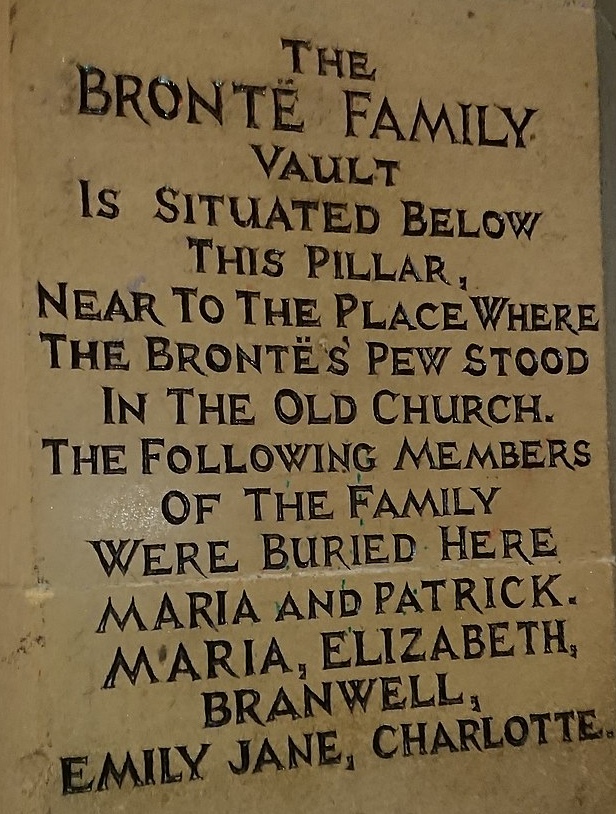 THE
BRONTË FAMILY
VAULT
IS SITUATED BELOW
THIS PILLAR,
NEAR TO THE PLACE WHERE
THE BRONTË'S' PEW STOOD
IN THE OLD CHURCH.
THE FOLLOWING MEMBERS
OF THE FAMILY
WERE BURIED HERE
MARIA AND PATRICK.
MARIA, ELIZABETH,
BRANWELL,
EMILY JANE, CHARLOTTE.